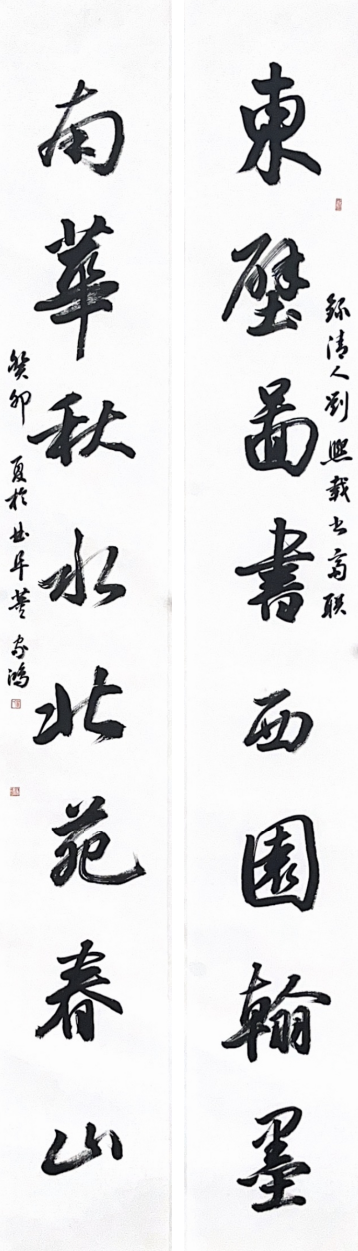 東壁圖書西園翰墨
錄清人劉熙載書齋联
南華秋水北苑春山
癸卯夏於曲阜董家鴻